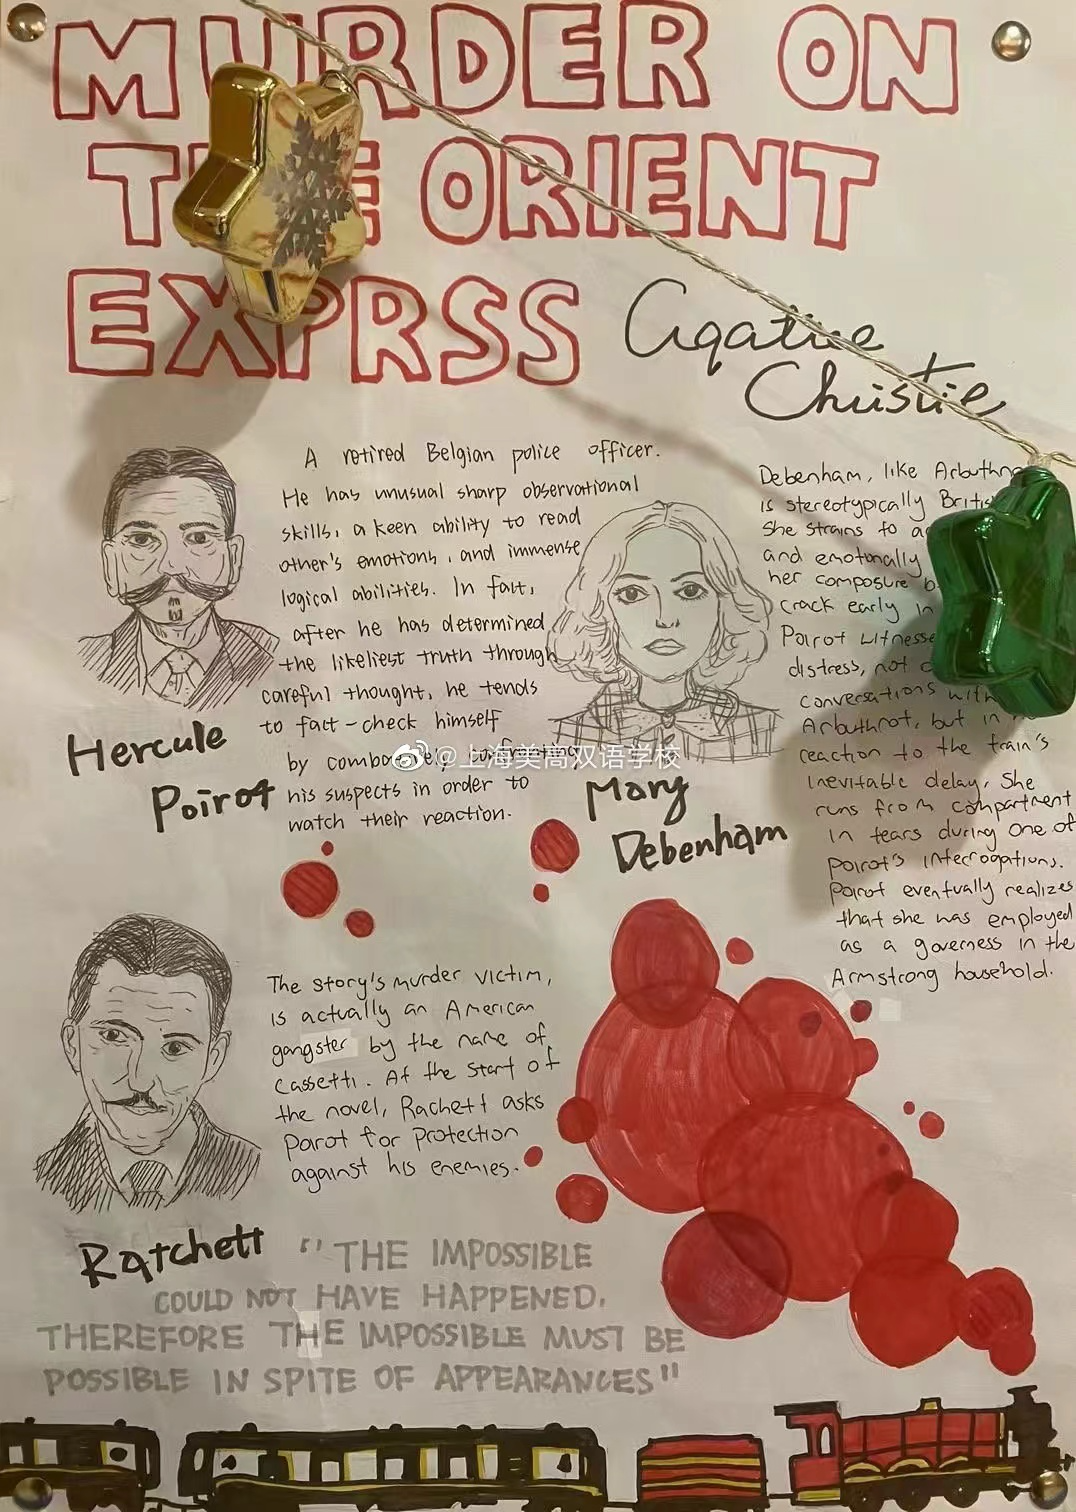 MURDER ON
THE ORIENT
EXPRSS
Agathe
Christie
A retired Belgian police officer.
He has unusual sharp observational
skills, a keen ability to read
other's emotions, and immense
logical abilities. In fact,
after he has determined
the likeliest truth through
careful thought, he tends
to fact-check himself
by
his suspects in order to
watch their reaction.
Hercule
Poirot
Debenham, like
is stereotypically
She strains to
and emotonally
her composure
crack early in
Poirot witnesse
distress, not
conversations with
Arbuthnot, but in
reaction to the train's
inevitable delay. She
runs from compartment
in tears during one of
Poirot's interrogations.
Poirot eventually realizes
that she was employed
as a governess in the
Armstrong household.
@上海美高双语学校
Mary
Debenham
The story's murder victim,
is actually an American
gangster by the name of
Cassetti. At the start of
the novel, Rachett asks
Poirot for protection
against his enemies.
Ratchett
"THE IMPOSSIBLE
COULD NOT HAVE HAPPENED.
THEREFORE THE IMPOSSIBLE MUST BE
POSSIBLE IN SPITE OF APPEARANCES"